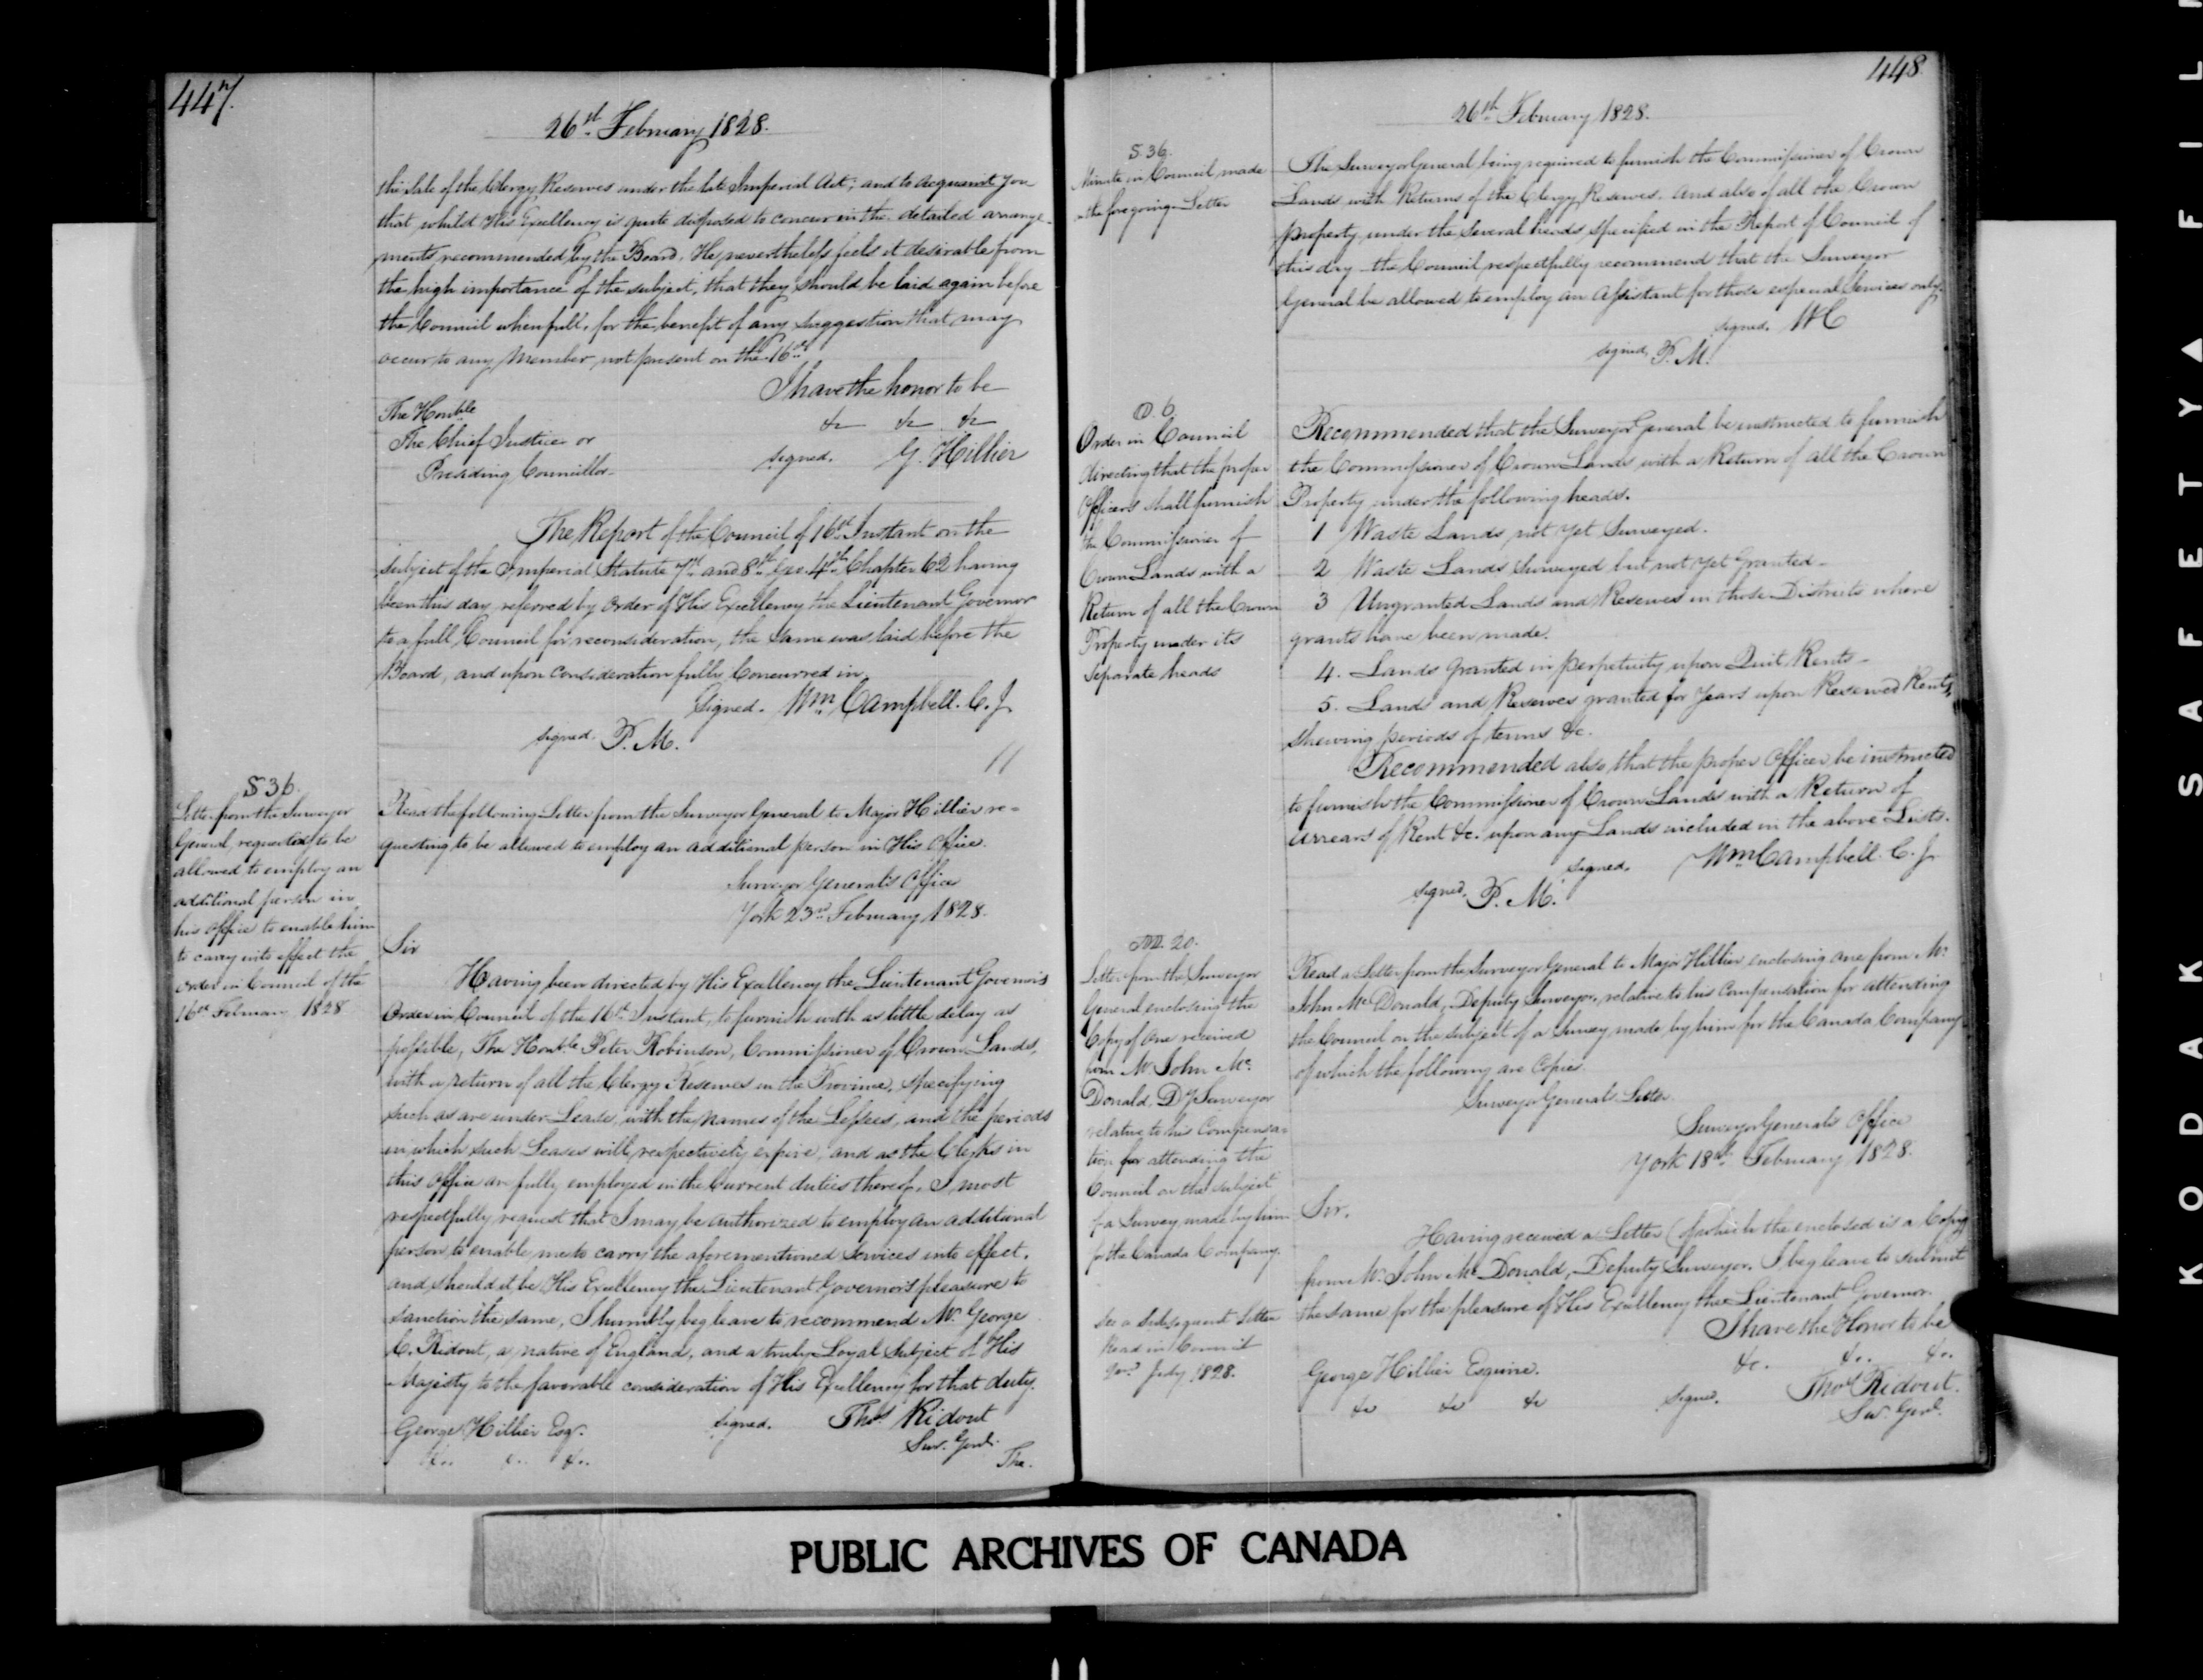 447.
26st February 1828.
the Sale of the Clergy Reserves under the late Imperial Act; and to acquaint you
that whilst His Excellency is quite disposed to concur in the detailed arrange-
ments recommended by the Board, He nevertheless feels it desirable from
the high importance of the subject, that they should be laid again before
the Council when full, for the benefit of any suggestion that may
occur to any Member not present on the 16st
I have the honor to be
&c &c &c
The Honble
The Chief Justice or
Presiding Councillor
signed. G. Hillier
The Report of the Council of 16st Instant on the
subject of the Imperial Statute 7th and 8th Geo. 4th Chapter 62 having
been this day referred by order of His Excellency the Lieutenant Governor
to a full Council for reconsideration, the same was laid before the
Board, and upon consideration fully Concurred in.
Signed. Wm Campbell. C. J.
signed. P. M.
S 36.
Letter from the Surveyor
General requested to be
allowed to employ an
additional person in
his office to enable him
to carry into effect the
order in Council of the
16st February 1828
Read the following Letter from the Surveyor General to Major Hillier re-
questing to be allowed to employ an additional person in His Office.
Surveyor General's Office
York 23rd February 1828.
Sir
Having been directed by His Excellency the Lieutenant Governor's
Order in Council of the 16st Instant, to furnish with as little delay as
possible, The Honble Peter Robinson, Commissioner of Crown Lands,
with a return of all the Clergy Reserves in the Province, specifying
such as are under Lease, with the names of the Lessees, and the periods
in which such Leases will respectively expire, and as the Clerks in
this Office are fully employed in the Current duties thereof, I most
respectfully request that I may be authorized to employ an additional
person to enable me to carry the aforementioned Services into effect.
and should it be His Excellency the Lieutenant Governor's pleasure to
sanction the same, I humbly beg leave to recommend Mr George
C. Ridout, a native of England, and a truly Loyal Subject of His
Majesty to the favorable consideration of His Excellency for that duty.
George Hillier Esqr.
&c. &c. &c.
signed. Thos Ridout
Sur. Genl.
The.
448
26th February 1828.
S 36.
Minute in Council made
on the foregoing Letter
The Surveyor General being required to furnish the Commissioner of Crown
Lands with Returns of the Clergy Reserves. And also of all the Crown
property under the several heads specified in the Report of Council of
this day - the Council respectfully recommend that the Surveyor
General be allowed to employ an Assistant for those especial Services only.
signed. WC
signed, P. M.
O. 6.
Order in Council
directing that the proper
Officers shall furnish
the Commissioner of
Crown Lands with a
Return of all the Crown
Property under its
Separate heads
Recommended that the Surveyor General be instructed to furnish
the Commissioner of Crown Lands with a Return of all the Crown
Property under the following heads.
1 Waste Lands not yet Surveyed.
2 Waste Lands Surveyed but not yet Granted -
3 Ungranted Lands and Reserves in those Districts where
grants have been made.
4. Lands granted in perpetuity upon Quit Rents -
5. Lands and Reserves granted for years upon Reserved Rents,
shewing periods of terms &c.
Recommended also that the proper Officer be instructed
to furnish the Commissioner of Crown Lands with a Return of
arrears of Rent &c. upon any Lands included in the above Lists.
signed. Wm Campbell. C. J.
signed. P. M.
20.
Letter from the Surveyor
General enclosing the
Copy of one received
from Mr John Mc
Donald, Dy Surveyor
relative to his Compensa=
tion for attending the
Council on the subject
of a Survey made by him
for the Canada Company.
See a Subsequent Letter
Read in Council
July 1828.
Read a Letter from the Surveyor General to Major Hillier enclosing one from Mr
John McDonald, Deputy Surveyor, relative to his Compensation for attending
the Council on the subject of a Survey made by him for the Canada Company
of which the following are Copies.
Surveyor General's Letter
Surveyor General's Office
York 18th February 1828.
Sir.
Having received a Letter (of which the enclosed is a Copy)
from Mr John Mc Donald, Deputy Surveyor. I beg leave to submit
the same for the pleasure of His Excellency the Lieutenant Governor.
I have the Honor to be
&c. &c. &c.
George Hillier Esquire.
&c &c &c
signed. Thos Ridout.
Sur. Genl.
PUBLIC ARCHIVES OF CANADA
KODAK SAFETY▲FILM